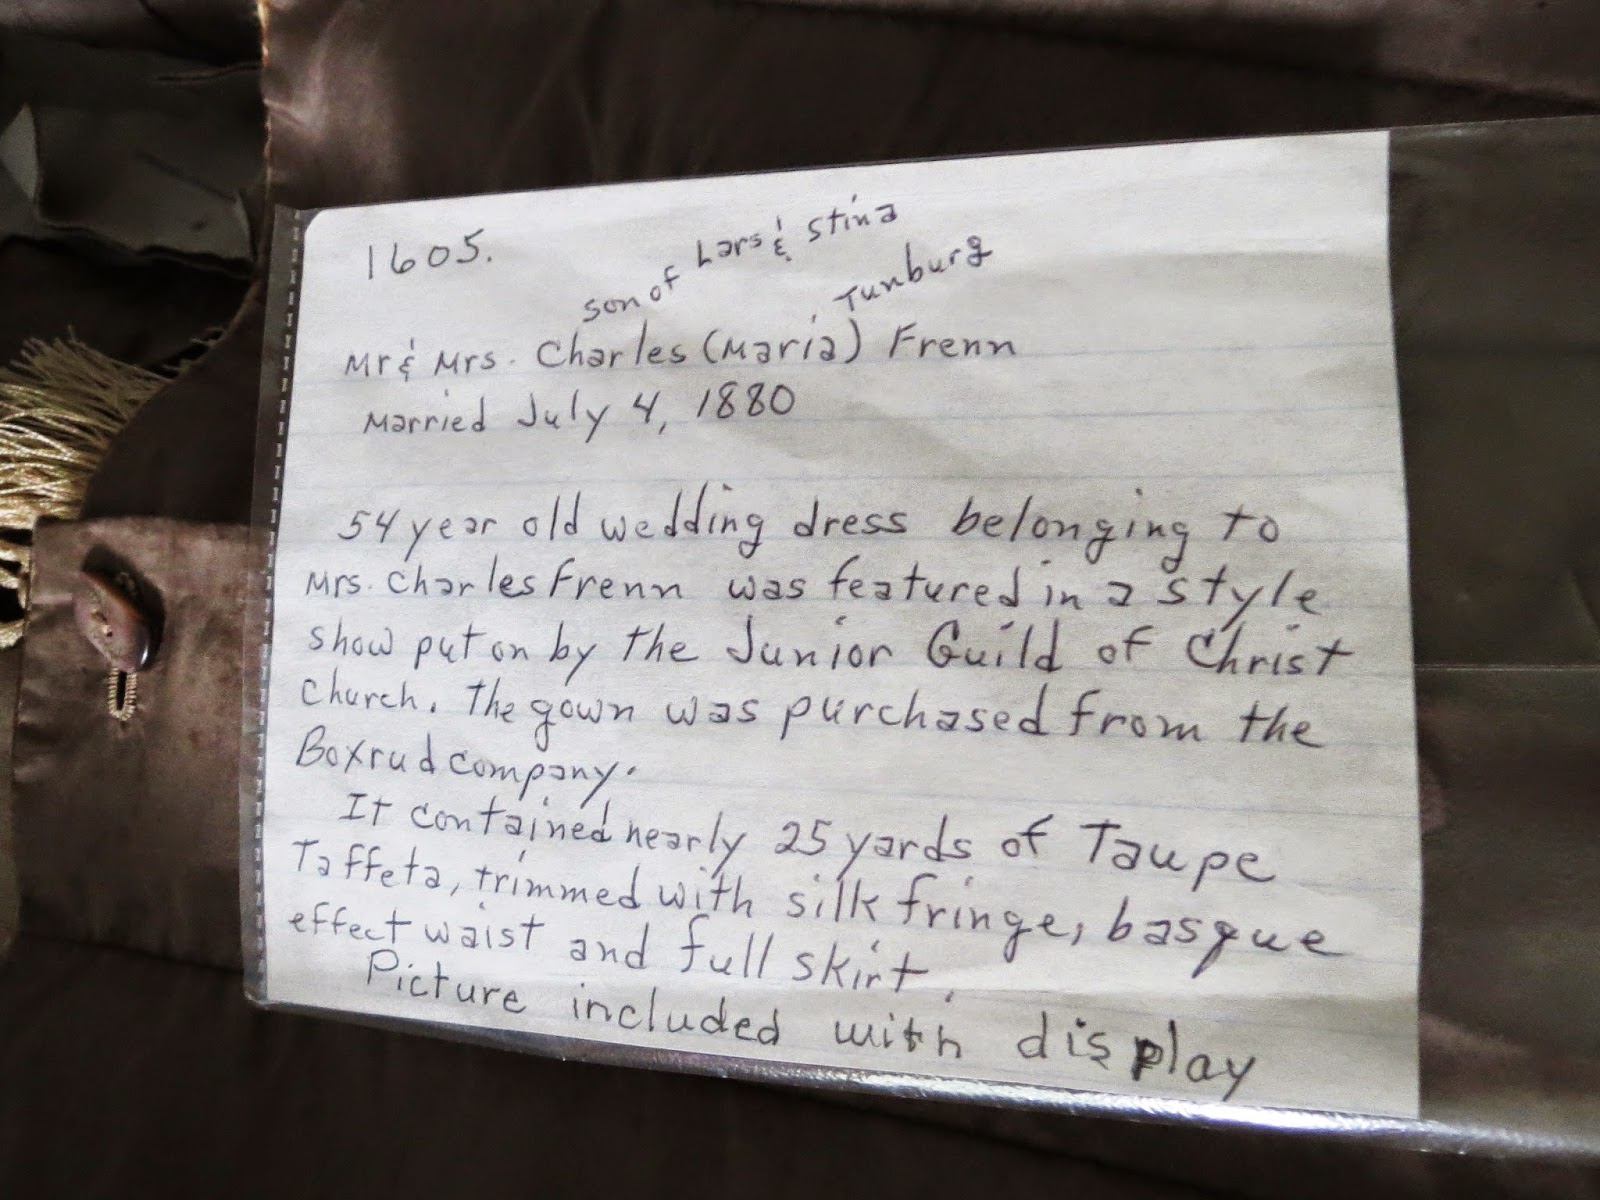 1605.
son of Lars & Stina
Tunburg
Mr & Mrs. Charles (Maria) Frenn
Married July 4, 1880
54 year old wedding dress belonging to
Mrs. Charles Frenn was featured in a style
show put on by the Junior Guild of Christ
Church. The gown was purchased from the
Boxrud company.
It contained nearly 25 yards of Taupe
Taffeta, trimmed with silk fringe, basque
effect waist and full skirt.
Picture included with display